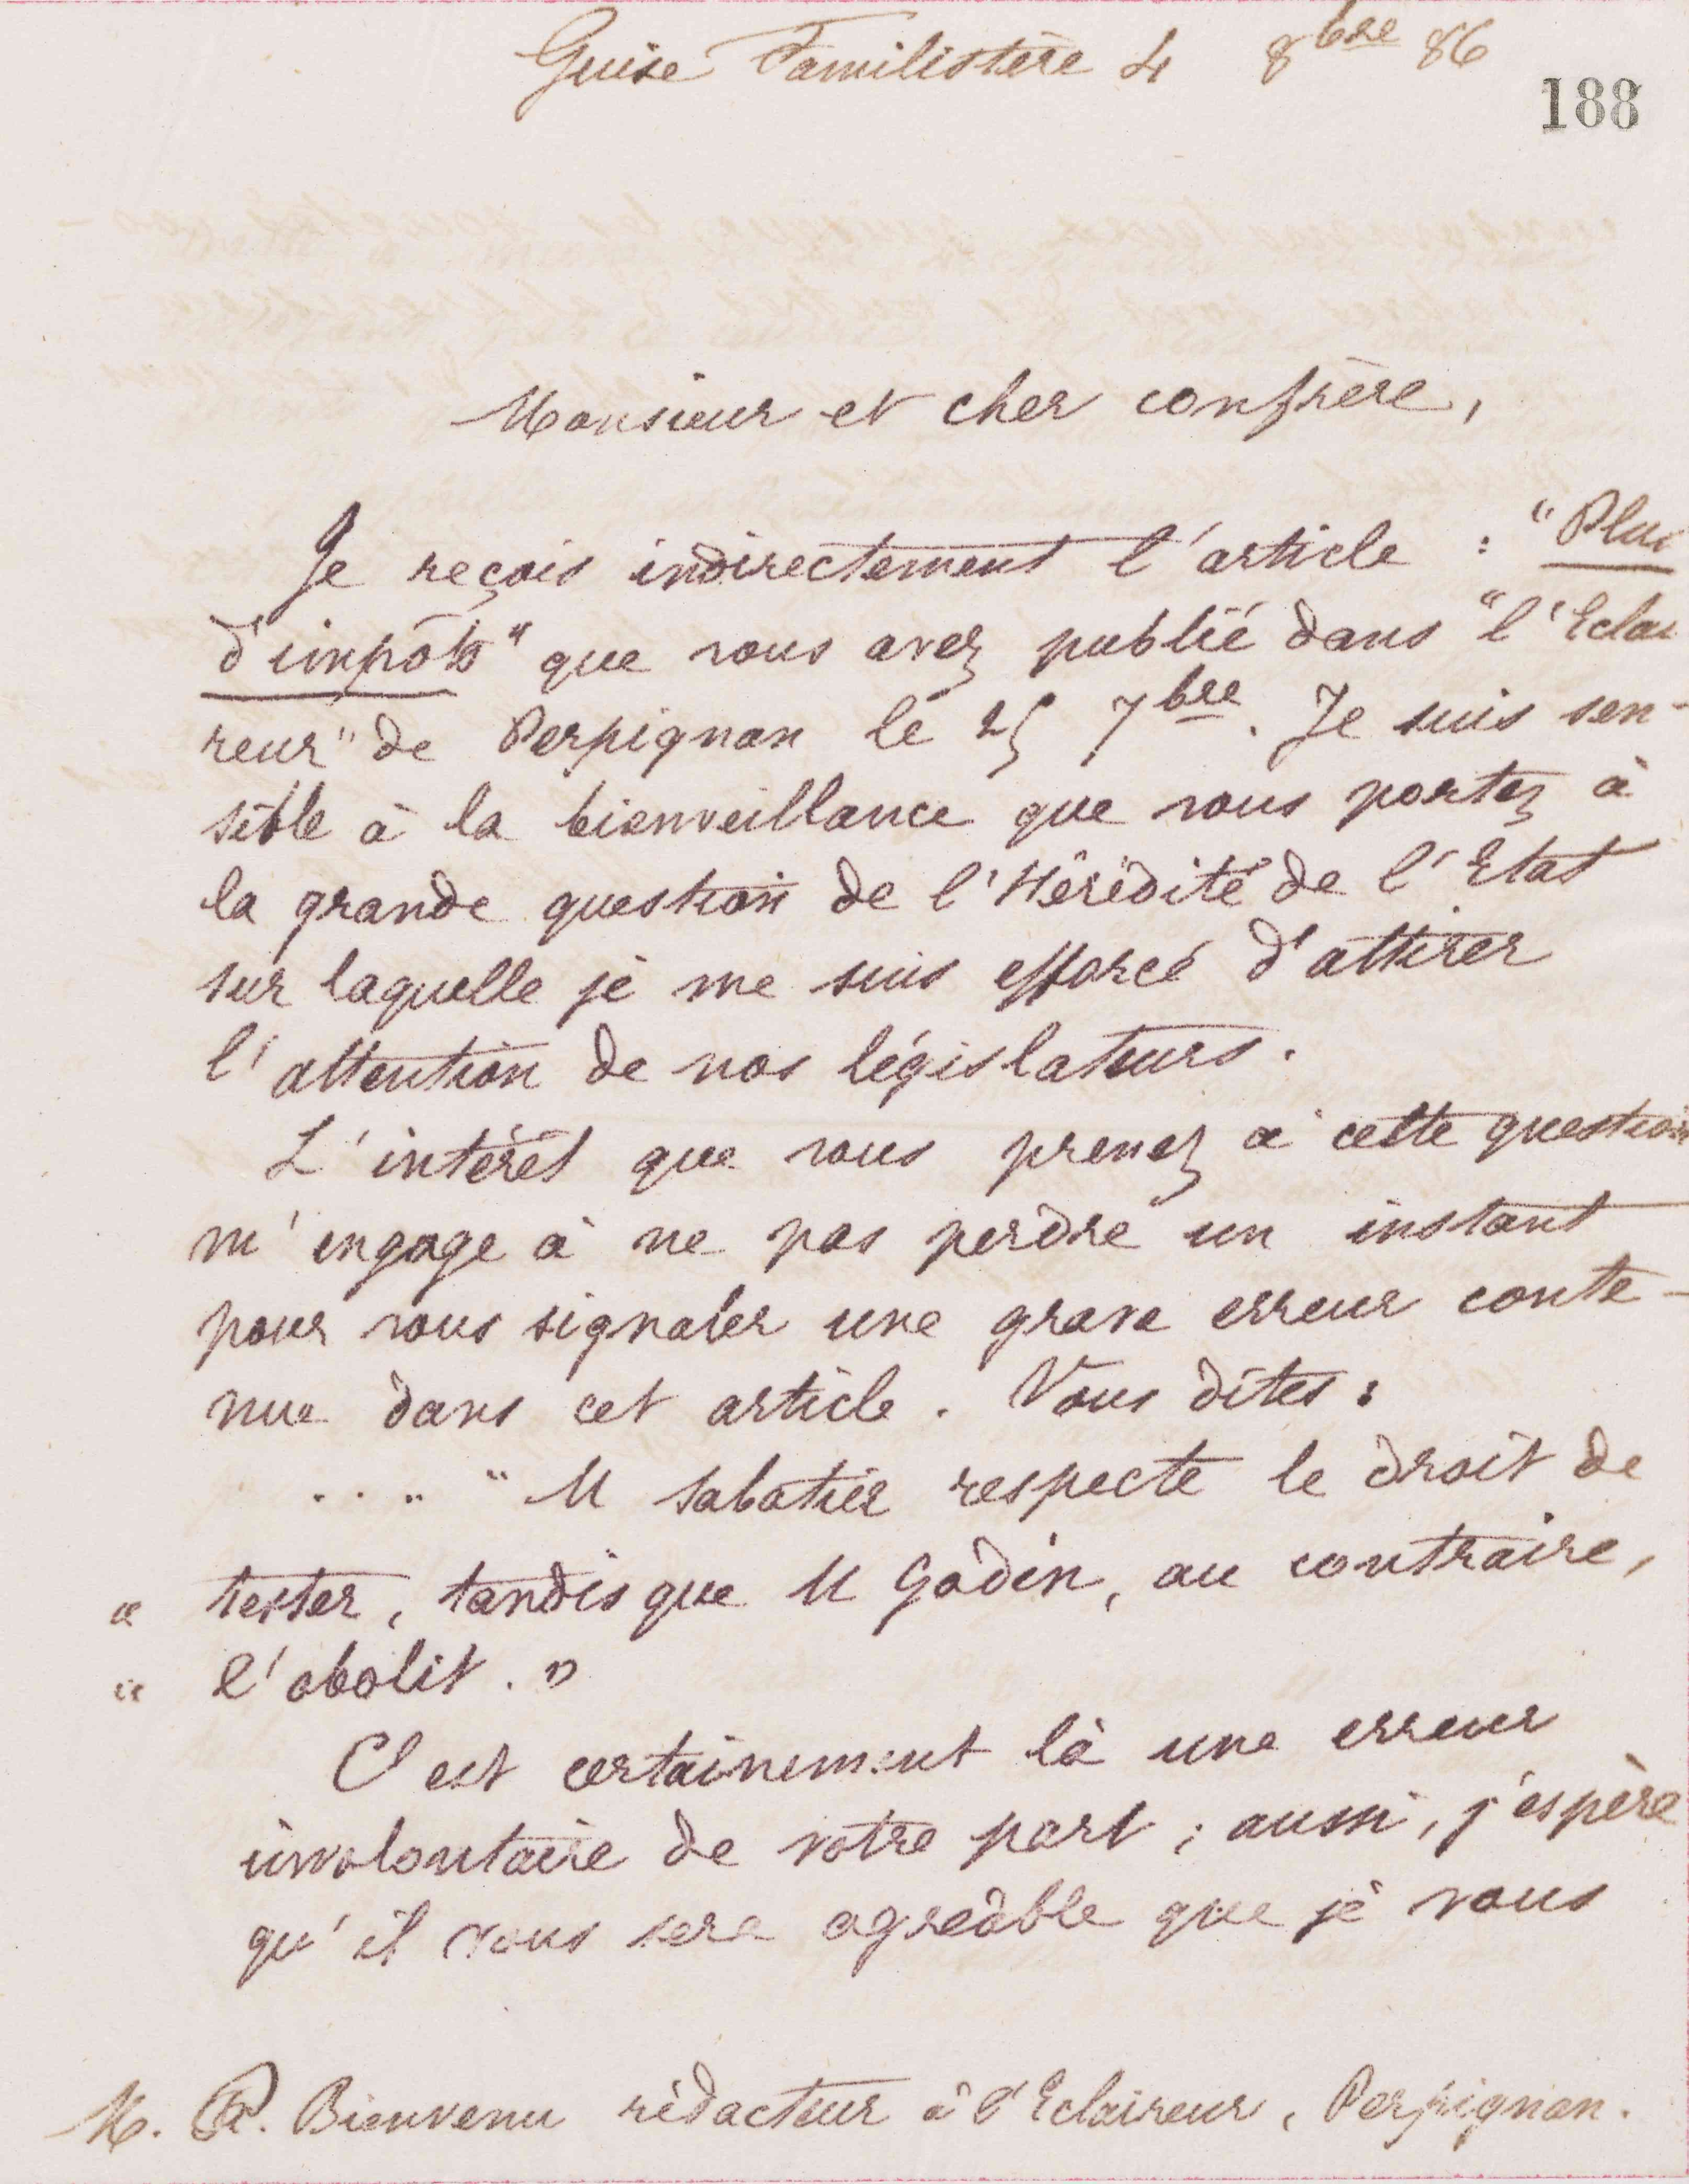 Guise Familistère 4 8bre 86
188
Monsieur et cher confrère,
Je reçois indirectement l'article : "Plus
d'impôts" que vous avez publié dans "l'Eclai
reur" de Perpignan le 25 7bre. Je suis sen-
sible à la bienveillance que vous portez à
la grande question de l'Hérédité de l'Etat
sur laquelle je me suis efforcé d'attirer
l'attention de nos législateurs.
L'intérêt que vous prenez à cette question
m'engage à ne pas perdre un instant
pour vous signaler une grave erreur conte-
nue dans cet article. Vous dites :
.... "M Sabatier respecte le droit de
" tester, tandis que M Godin, au contraire,
" l'abolit."
C'est certainement là une erreur
involontaire de votre part ; aussi, j'espère
qu'il vous sera agréable que je vous
M. Bienvenu rédacteur à l'Eclaireur, Perpignan.